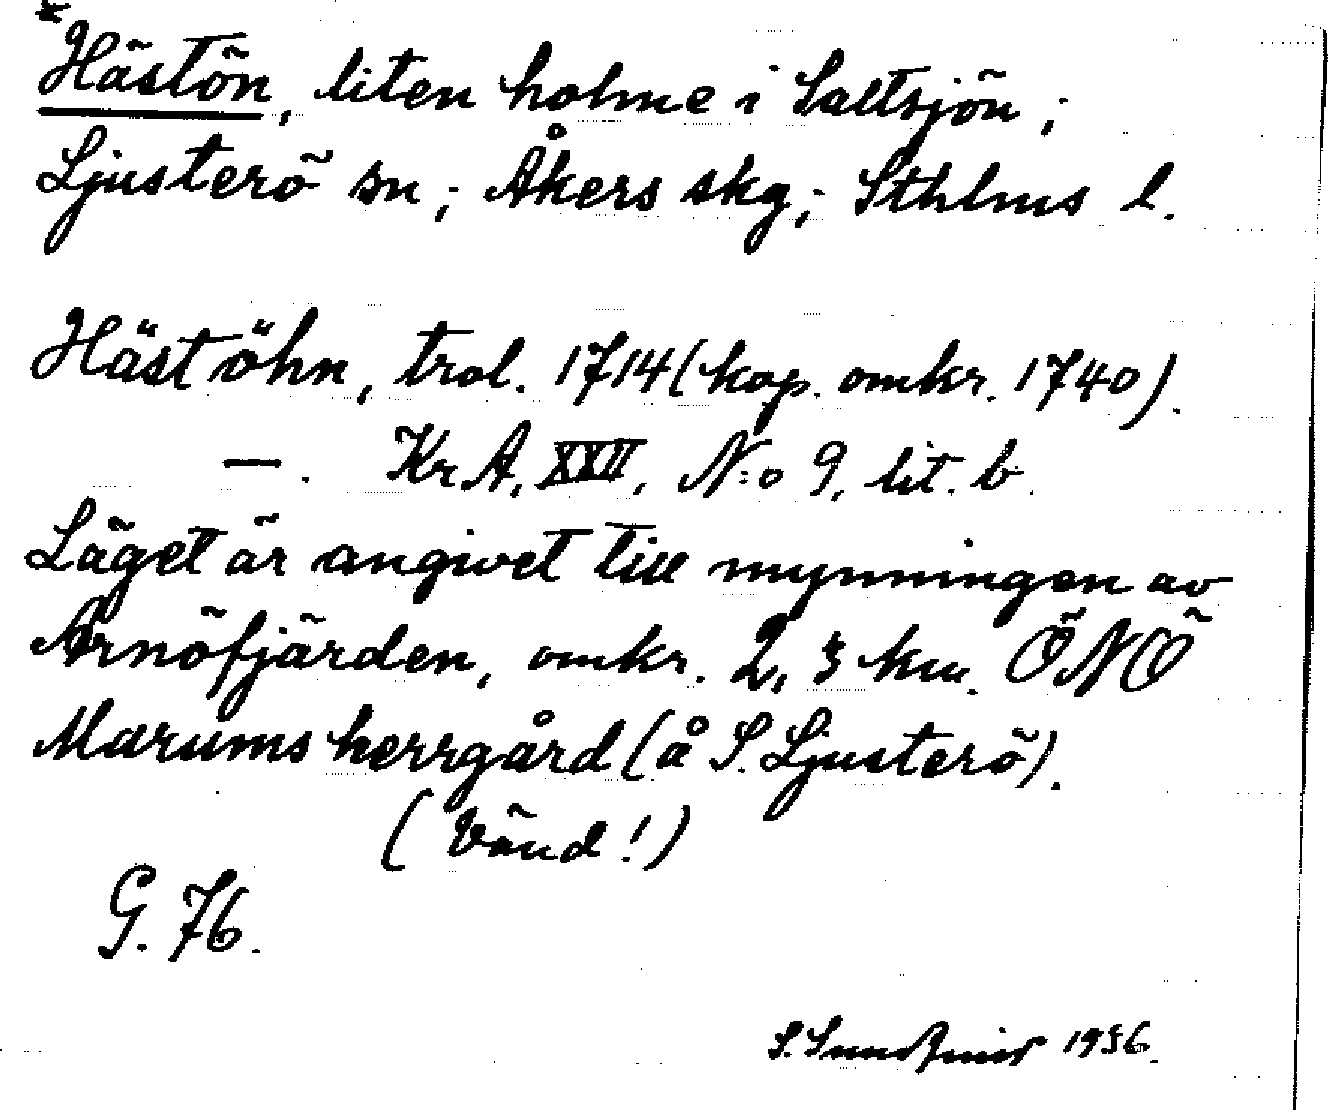 *Hästön, liten holme i Saltsjön;
Ljusterö sn; Åkers skg; Sthlms l.
Hästöhn, trol. 1714 (kop. omkr. 1740).
—. Kr A, XXII, N:o 9, lit. b.
Läget är angivet till mynningen av
Arnöfjärden, omkr. 2,3 km. ÖNÖ
Marums herrgård (å S. Ljusterö).
(Vänd!)
G. 76.
S. 1936.